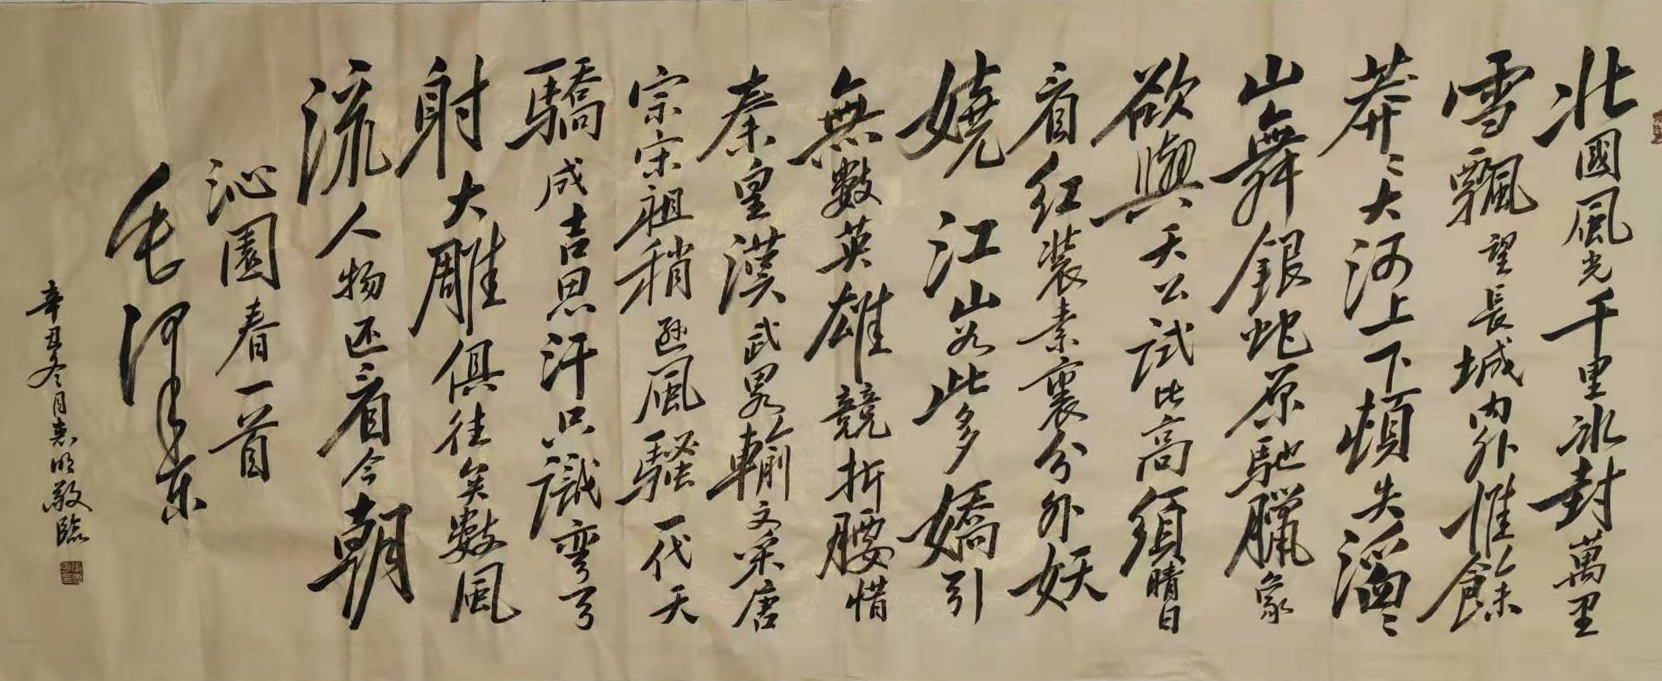 北國風光千里冰封萬里
雪飄望長城内外惟餘
莽〻大河上下頓失滔〻
山舞銀蛇原馳臘象
欲與天公試比高須晴日
看红裝素裹分外妖
嬈江山如此多嬌引
無數英雄競折腰惜
秦皇漢武畧輸文采唐
宗宋祖稍遜風騷一代天
驕成吉思汗只識彎弓
射大雕俱往矣數風
流人物还看今朝
沁園春一首
毛泽东
辛丑冬月志明敬臨